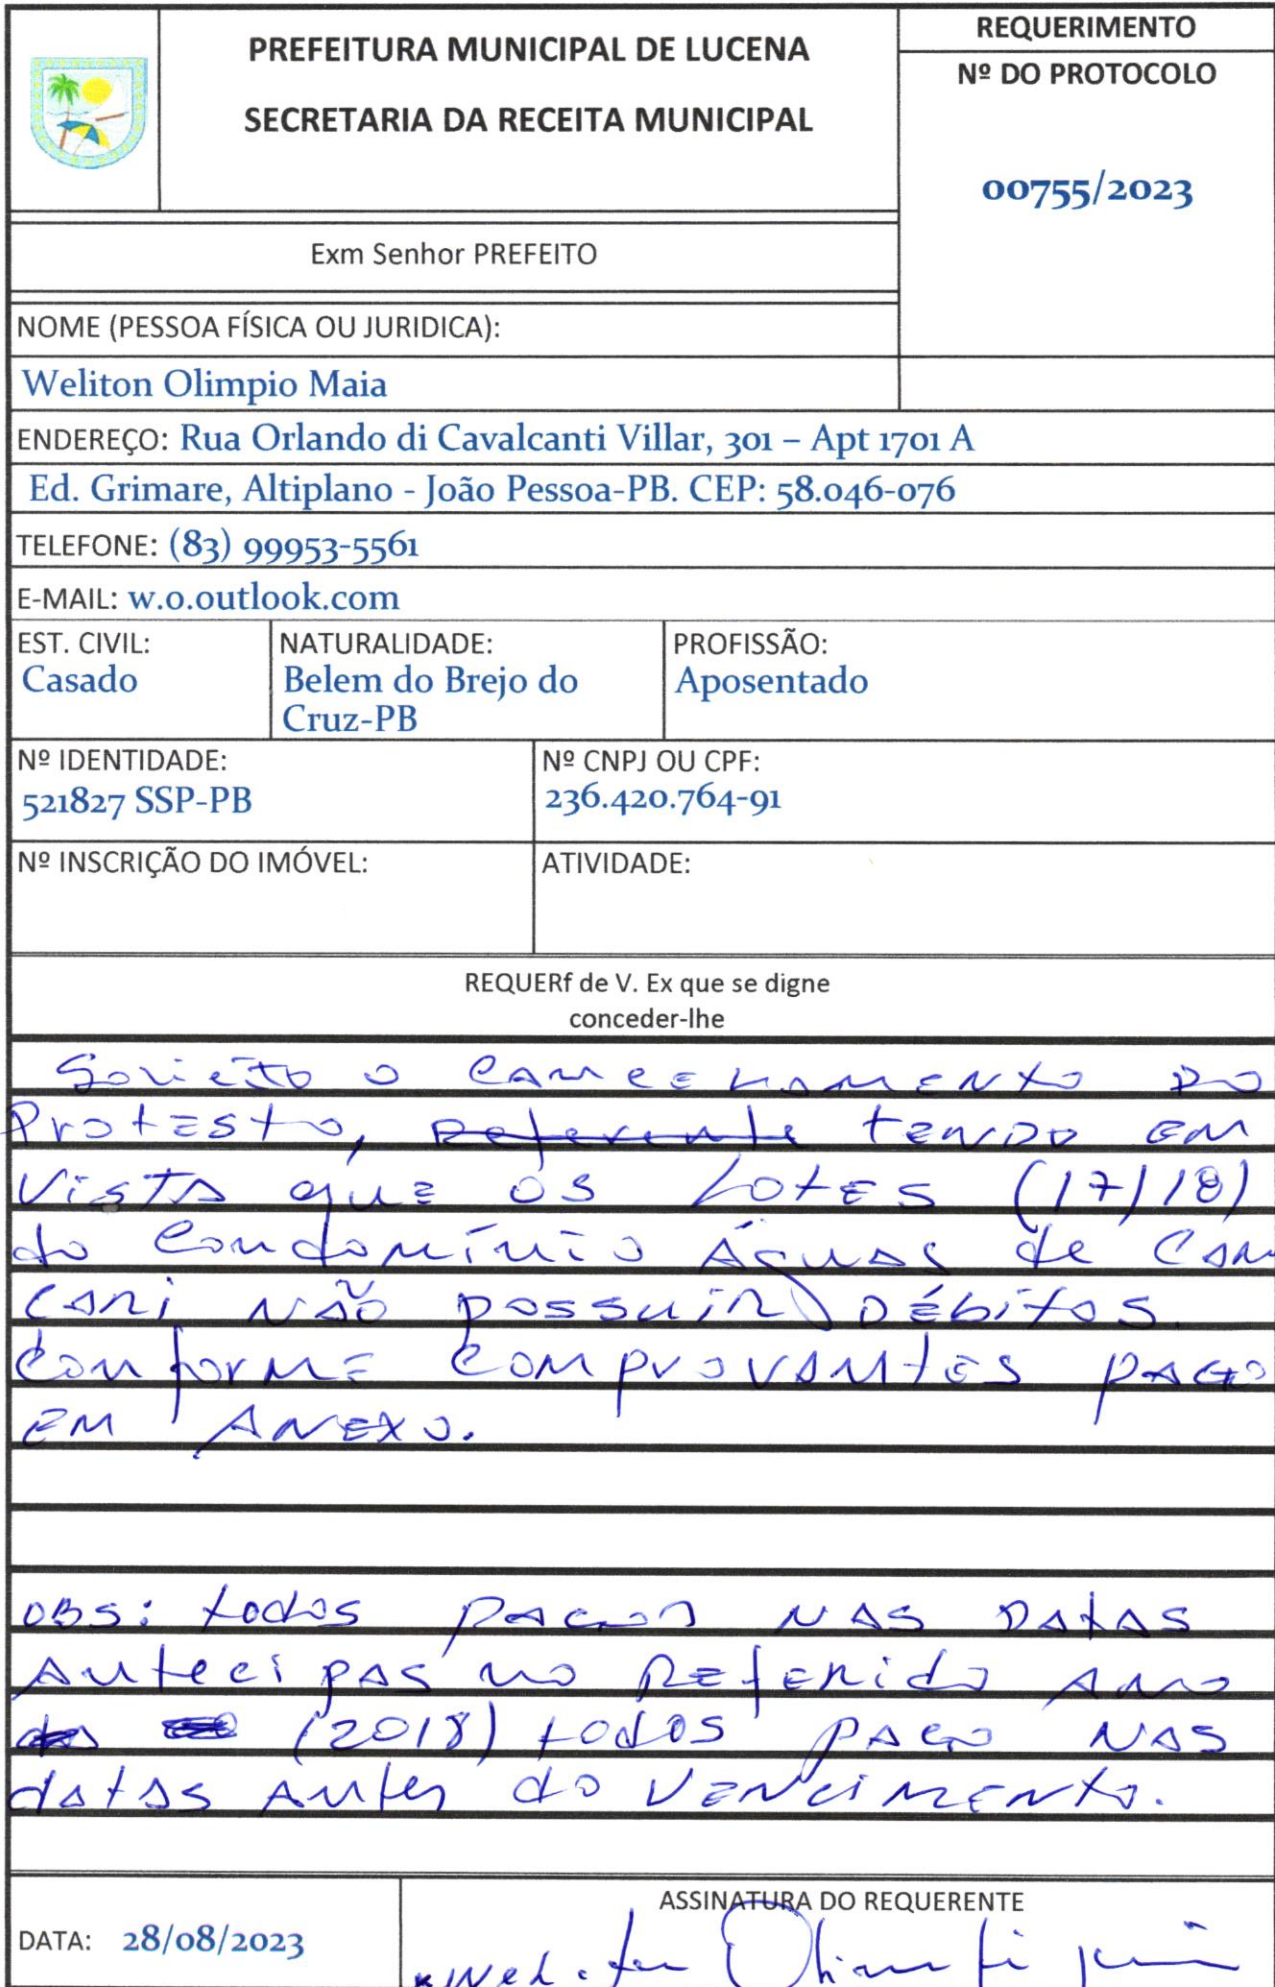 PREFEITURA MUNICIPAL DE LUCENA
SECRETARIA DA RECEITA MUNICIPAL
REQUERIMENTO
Nº DO PROTOCOLO
00755/2023
Exm Senhor PREFEITO
NOME (PESSOA FÍSICA OU JURIDICA):
Weliton Olimpio Maia
ENDEREÇO: Rua Orlando di Cavalcanti Villar, 301 – Apt 1701 A
Ed. Grimare, Altiplano - João Pessoa-PB. CEP: 58.046-076
TELEFONE: (83) 99953-5561
E-MAIL: w.o.outlook.com
EST. CIVIL:
Casado
NATURALIDADE:
Belem do Brejo do
Cruz-PB
PROFISSÃO:
Aposentado
Nº IDENTIDADE:
521827 SSP-PB
Nº CNPJ OU CPF:
236.420.764-91
Nº INSCRIÇÃO DO IMÓVEL:
ATIVIDADE:
REQUERf de V. Ex que se digne
conceder-lhe
o do
Protesto, Referente tendo em
vista que os Lotes (17/18)
do Condomínio Águas de Cam
cari não possuir débitos.
Conforme comprovantes pago
em anexo.
OBS: todos pagos nas datas
antecipas no referido ano
(2018) todos pago nas
datas antes do vencimento.
DATA: 28/08/2023
ASSINATURA DO REQUERENTE